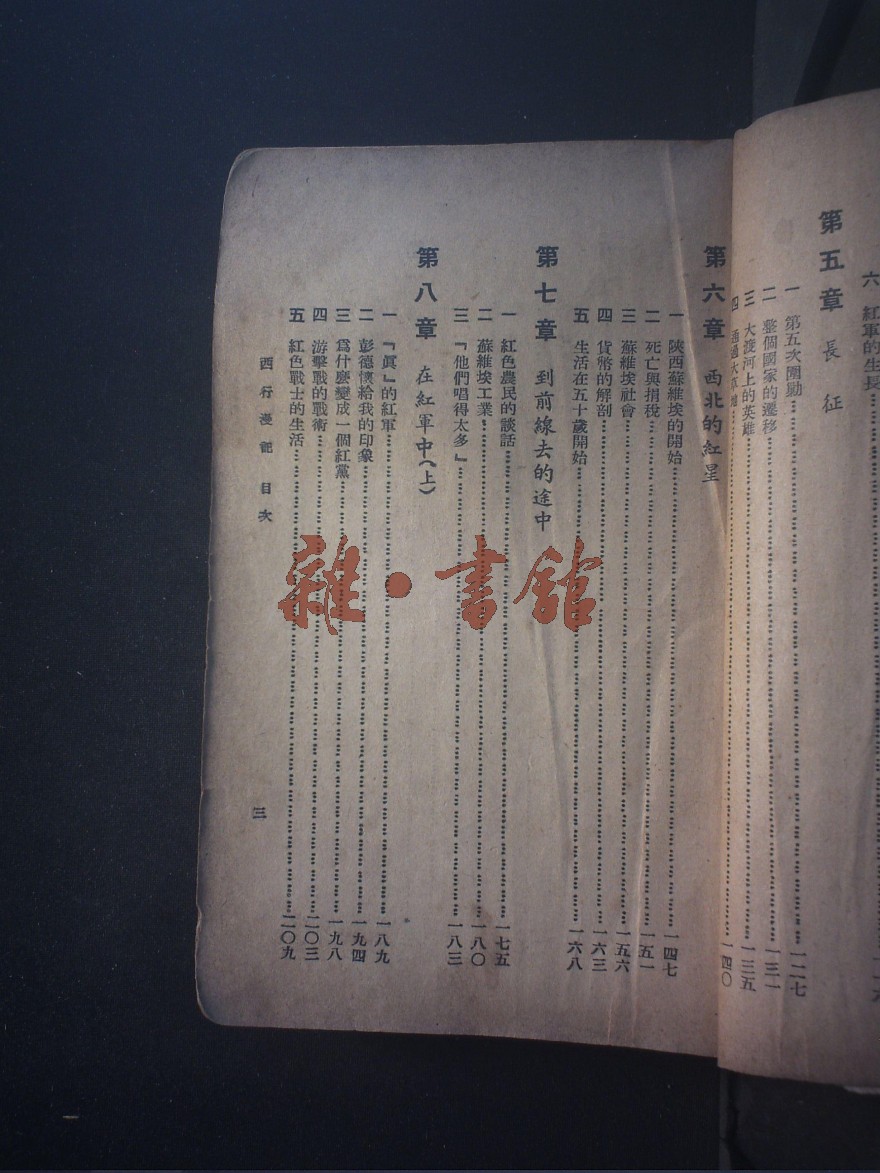 六　紅軍的生長
第五章　長征
一　第五次圍剿……一二七
二　整個國家的遷移……一三一
三　大渡河上的英雄……一三五
四　通過大草地……一四〇
第六章　西北的紅星
一　陝西蘇維埃的開始……一四七
二　死亡與捐稅……一五一
三　蘇維埃社會……一五六
四　貨幣的解剖……一六三
五　生活在五十歲開始……一六八
第七章　到前線去的途中
一　紅色農民的談話……一七五
二　蘇維埃工業……一八〇
三　『他們唱得太多』……一八三
第八章　在紅軍中（上）
一　『眞』的紅軍……一八九
二　彭德懷給我的印象……一九四
三　爲什麼變成一個紅黨……一九八
四　游擊戰的戰術……二〇三
五　紅色戰士的生活……二〇九
西行漫記　目次
三
雜·書館